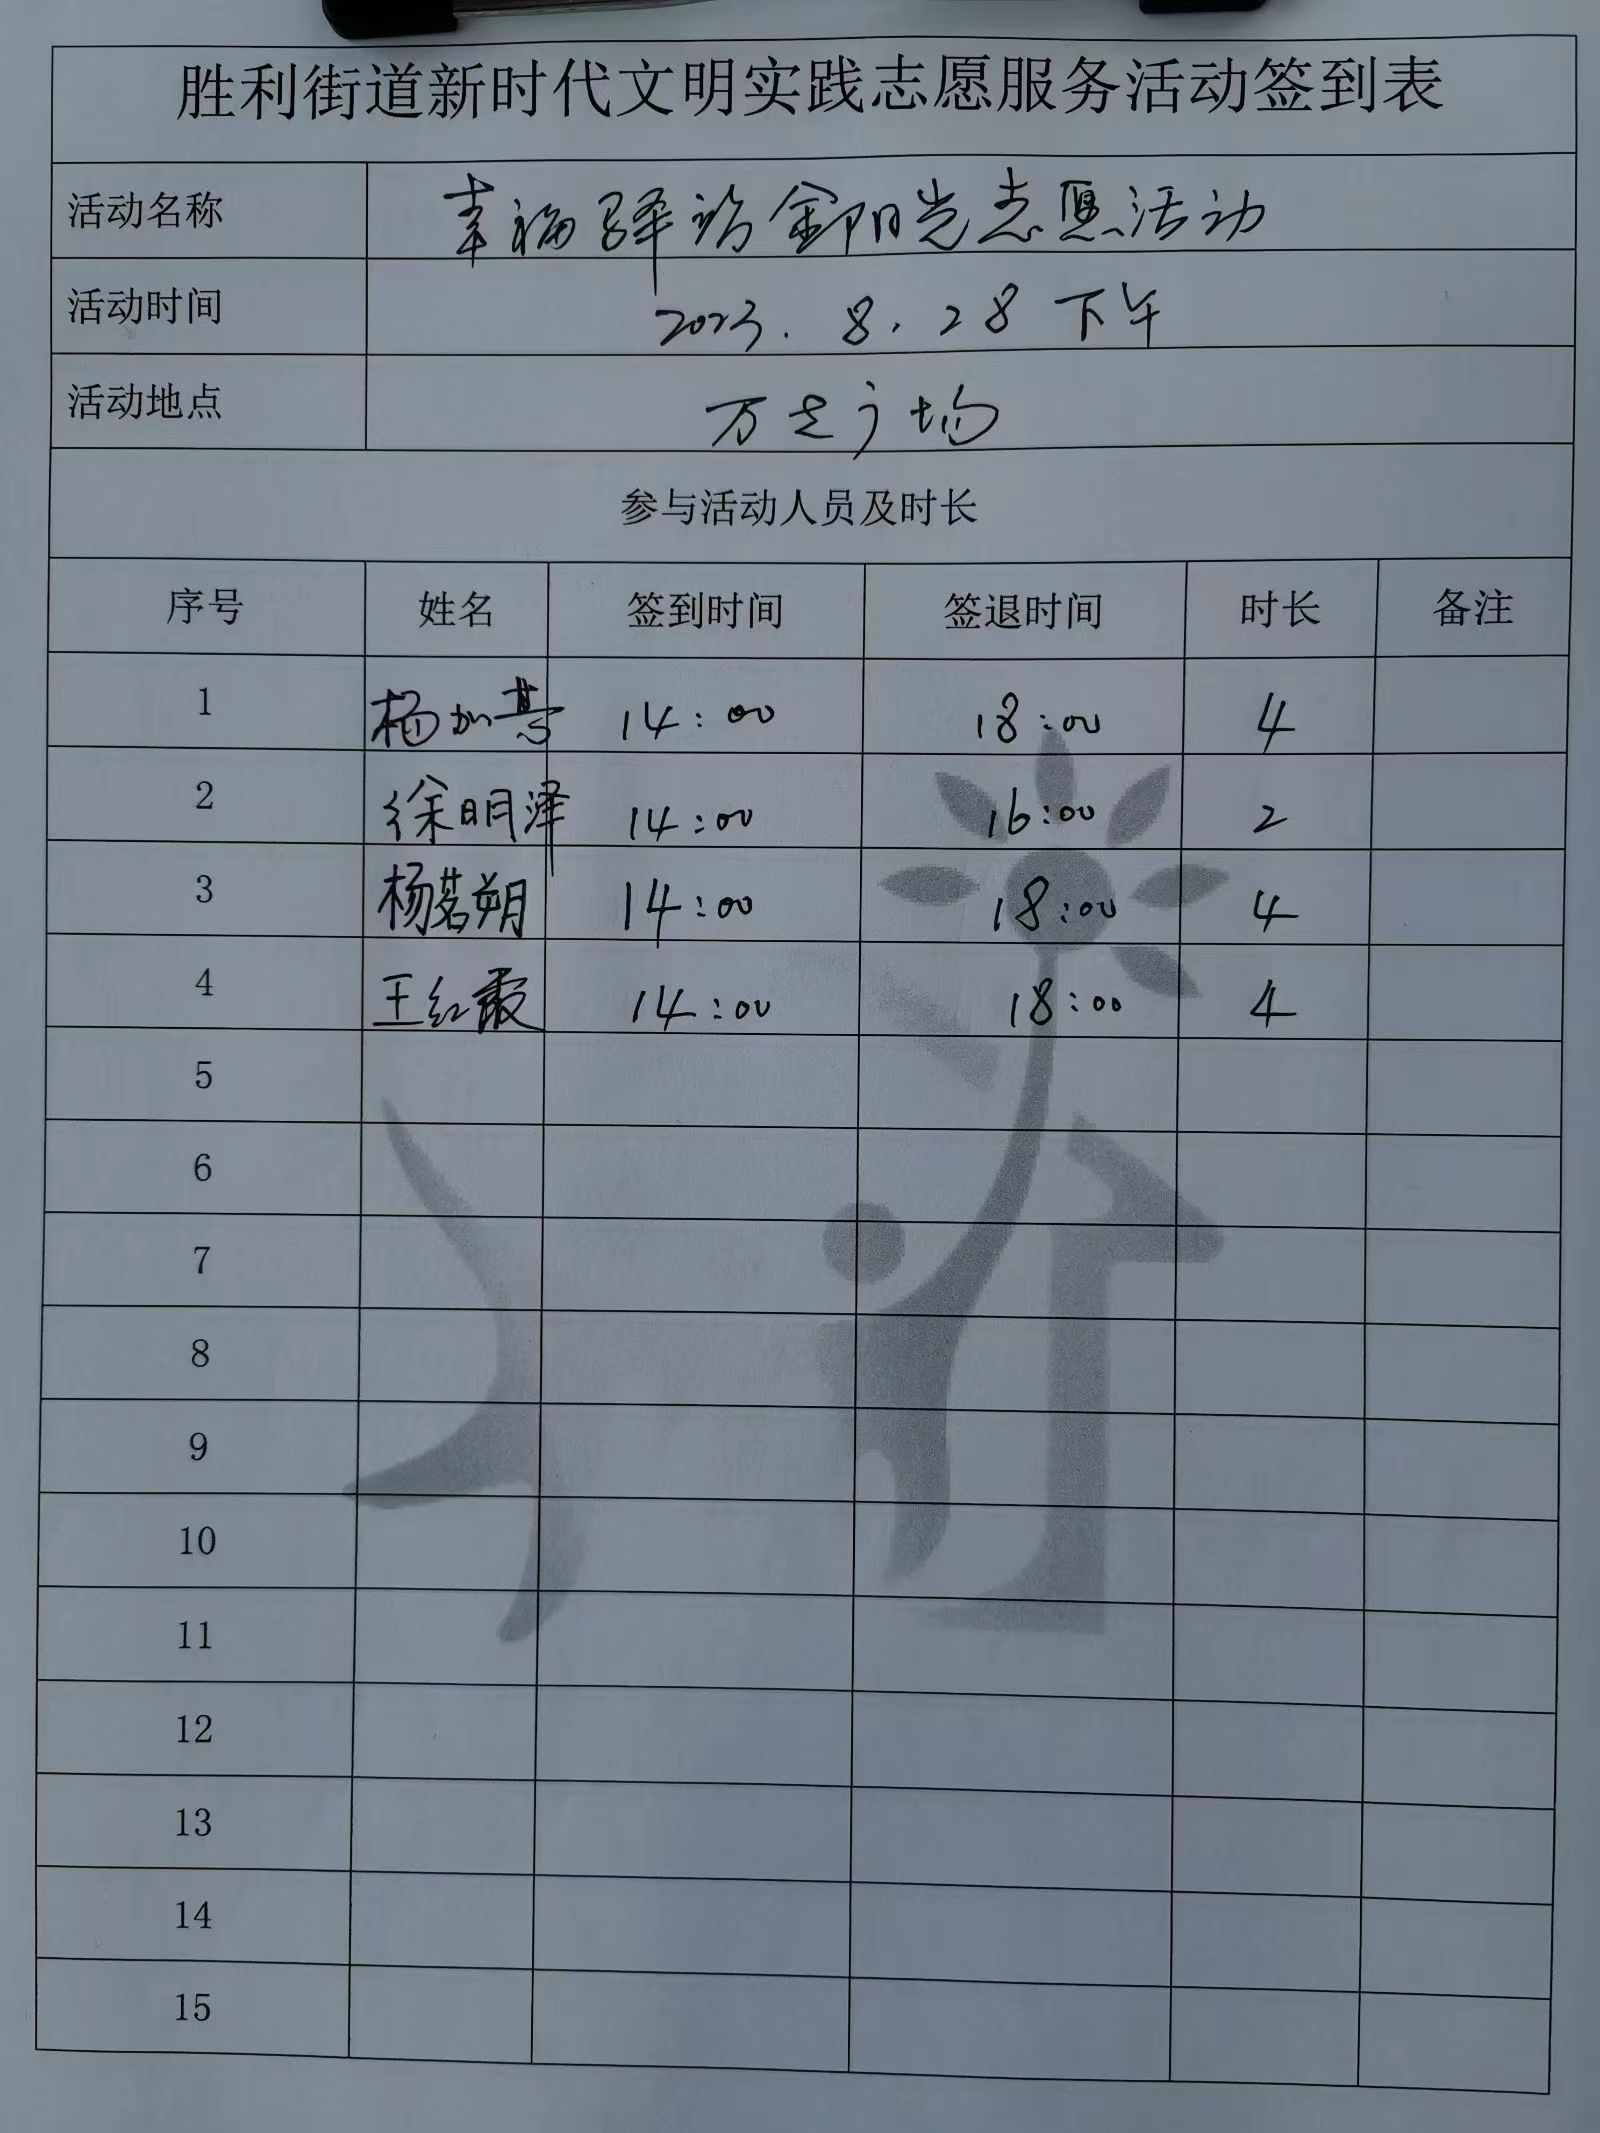 胜利街道新时代文明实践志愿服务活动签到表
活动名称 幸福驿站金阳光志愿活动
活动时间 2023.8.28 下午
活动地点 万达广场
参与活动人员及时长
序号 姓名 签到时间 签退时间 时长 备注
1 杨加慧 14:00 18:00 4
2 徐明泽 14:00 16:00 2
3 杨茗朔 14:00 18:00 4
4 王红霞 14:00 18:00 4
5
6
7
8
9
10
11
12
13
14
15